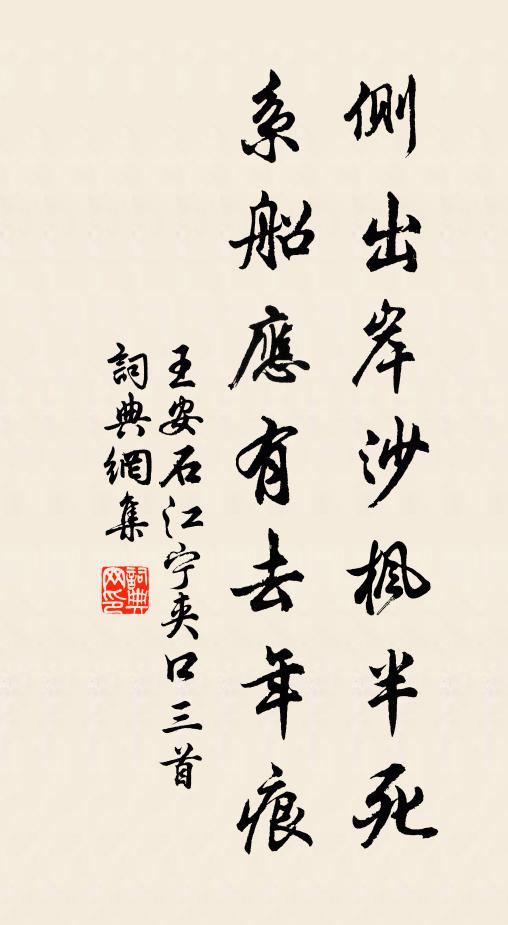 側出岸沙楓半死
系船應有去年痕
王安石江宁夹口三首
詞典網集
詞典網印